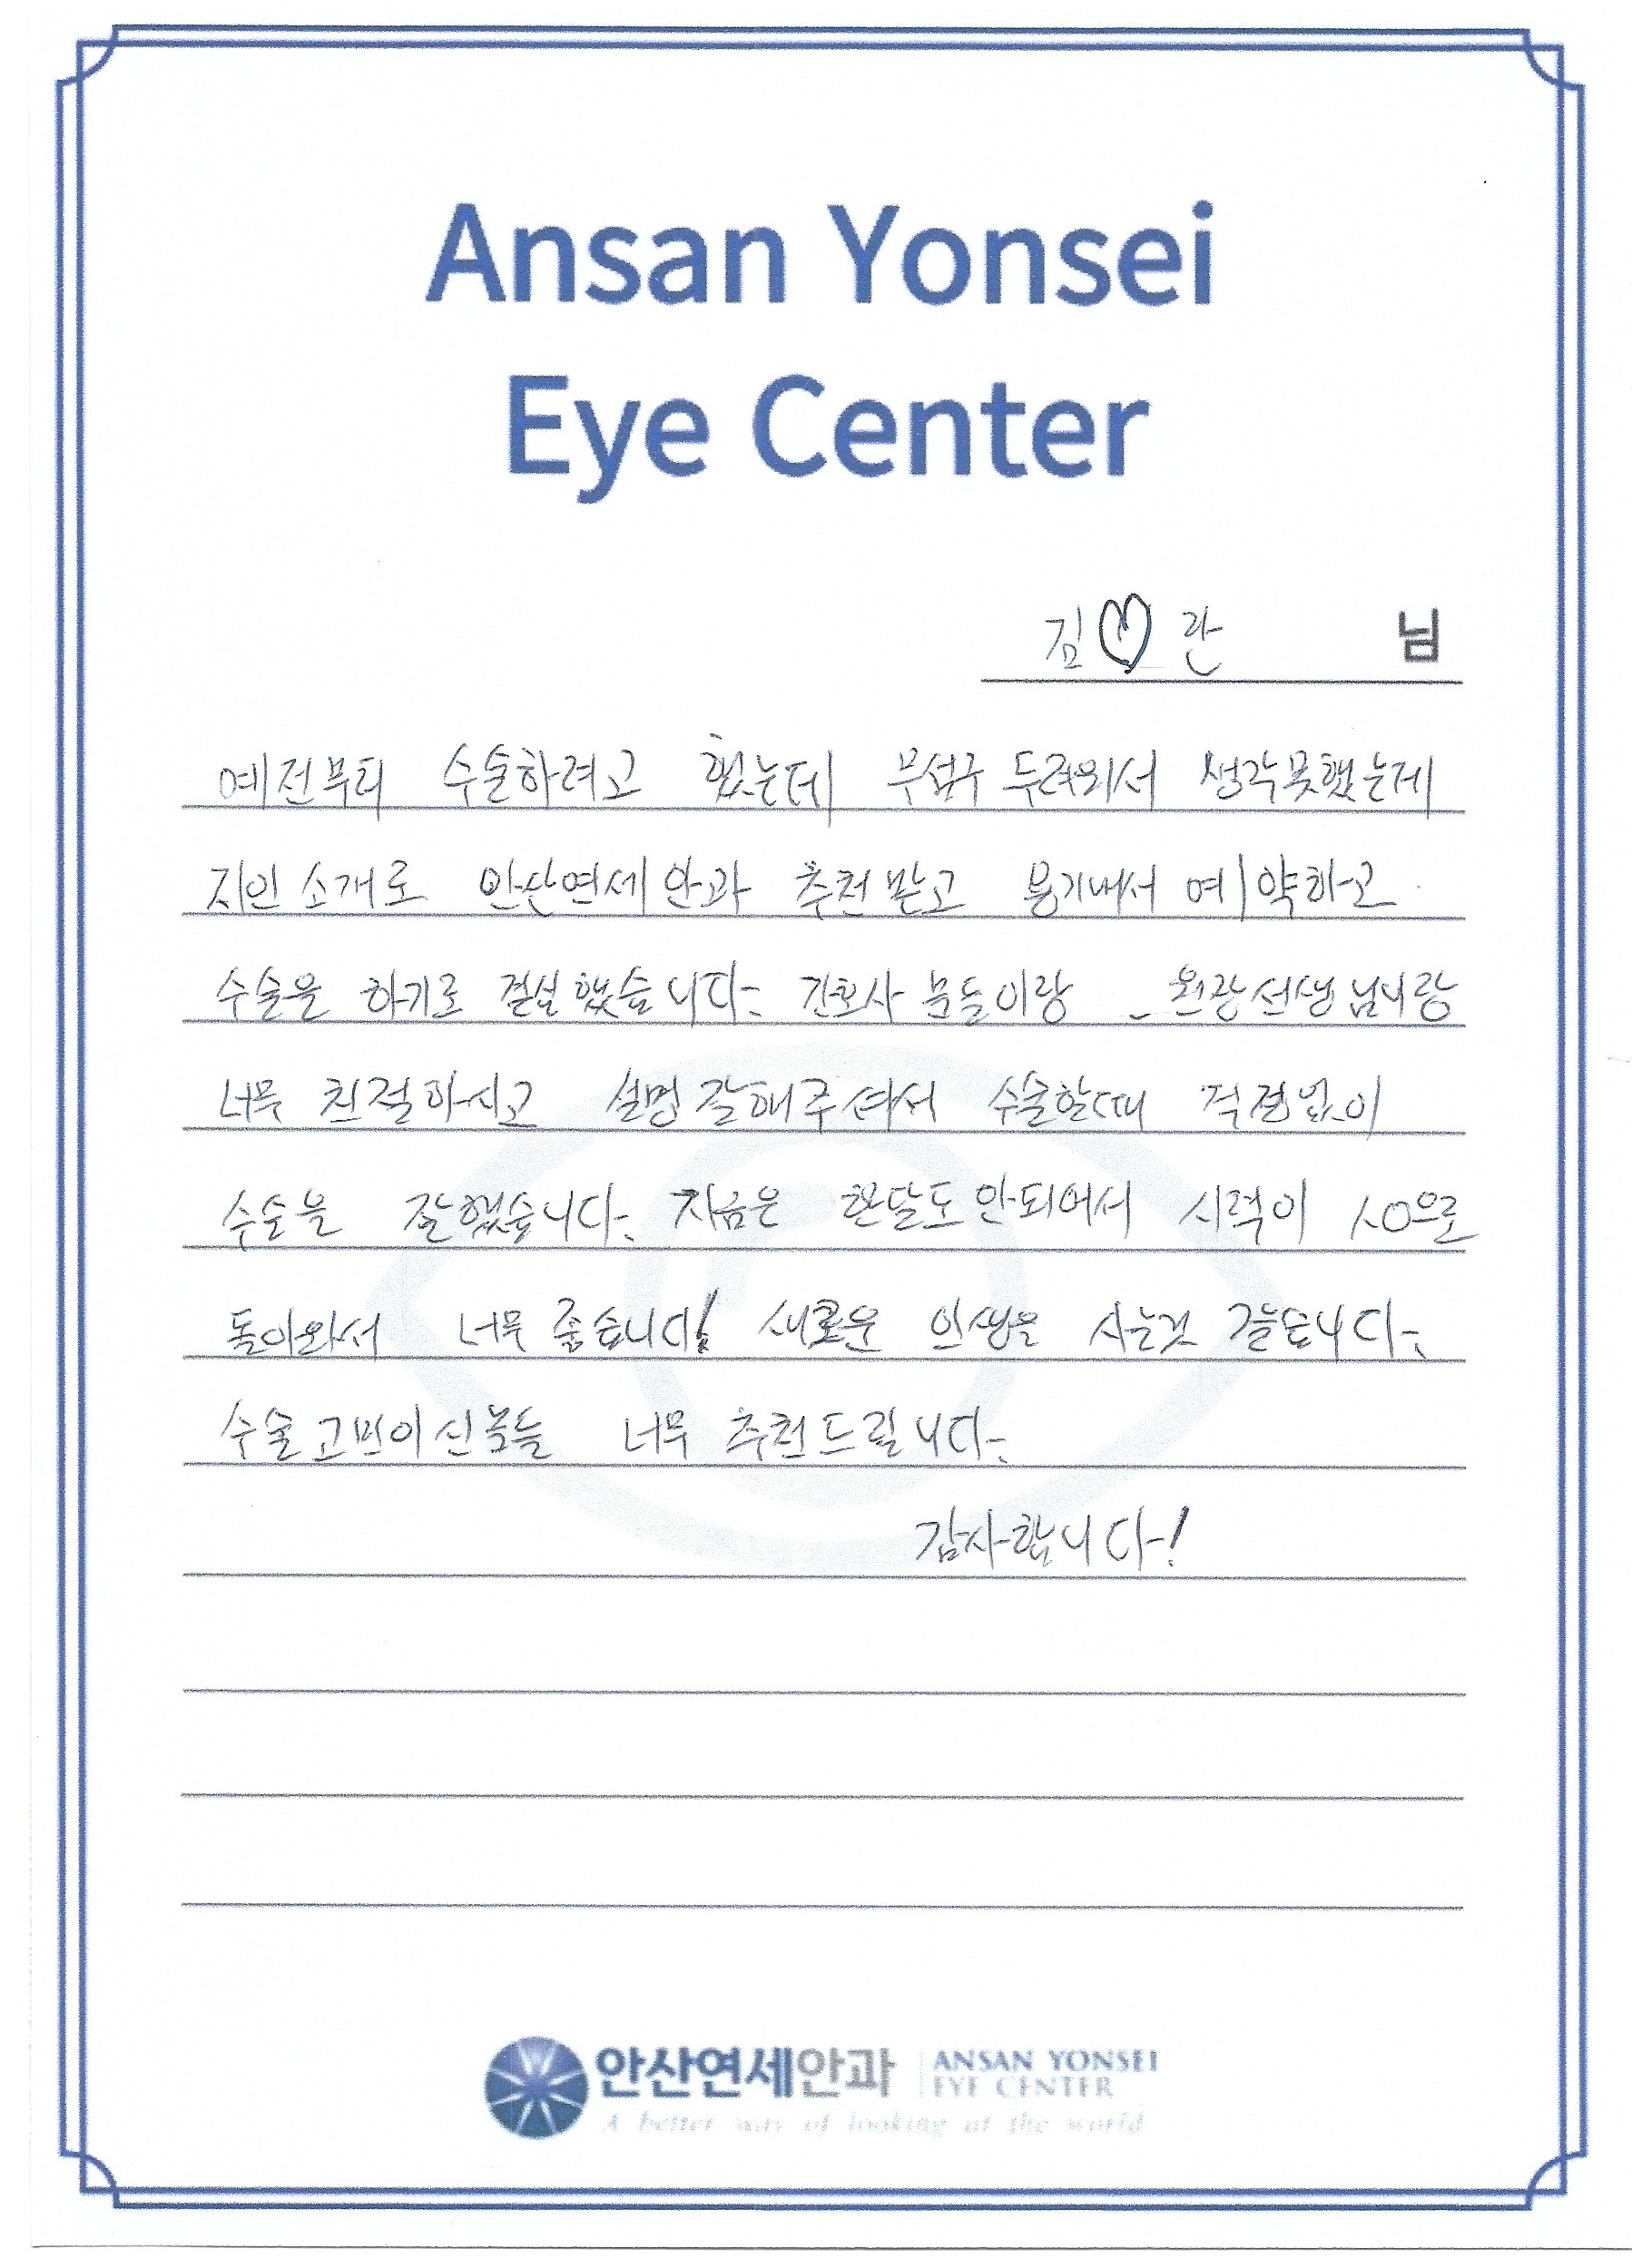 Ansan Yonsei
Eye Center
김♡란 님
예전부터 수술하려고 했는데 무섭구 두려워서 생각못했는데
지인 소개로 안산연세안과 추천받고 용기내서 예약하고
수술을 하기로 결심했습니다. 간호사분들이랑 원장선생님이랑
너무 친절하시고 설명 잘해주셔서 수술할때 걱정없이
수술을 잘했습니다. 지금은 한달도 안되어서 시력이 1.0으로
돌아와서 너무 좋습니다! 새로운 인생을 사는것 같습니다.
수술고민이신분들 너무 추천드립니다.
감사합니다!
안산연세안과 ANSAN YONSEI
EYE CENTER
A better way of looking at the world